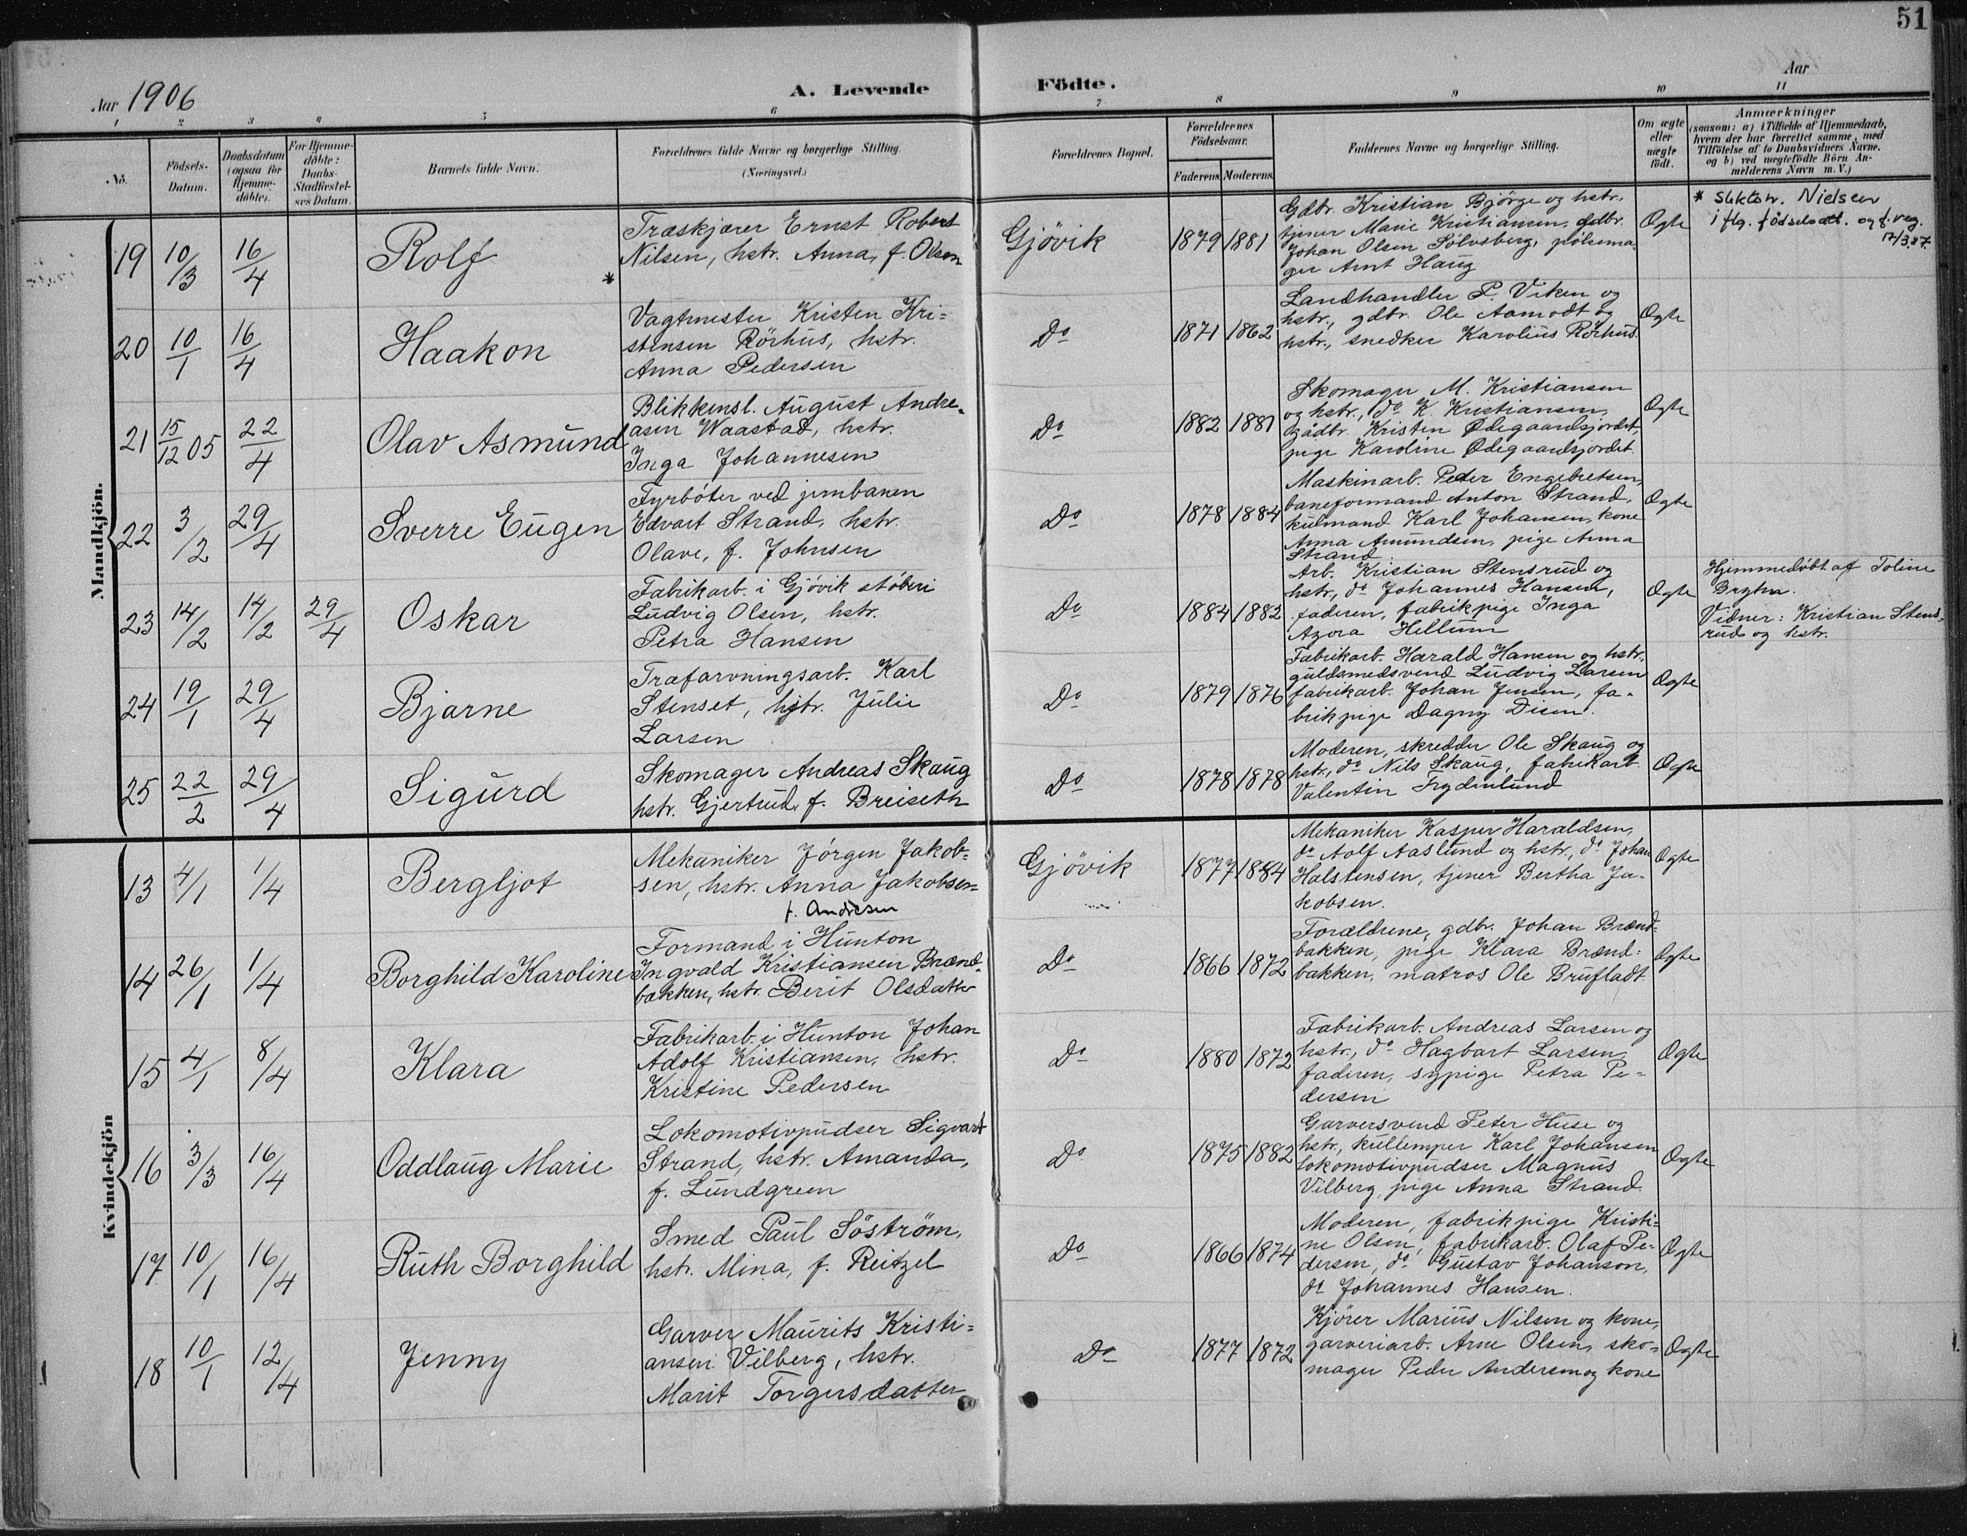 51
Aar 1906
A. Levende Födte.
Aar
1 2 3 4 5 6 7 8 9 10 11
No.
Födsels-Datum.
Daabsdatum (ogsaa for Hjemme-döbte).
For Hjemme-döbte: Daabs-Stadfæstel-ses Datum.
Barnets fulde Navn.
Forældrenes fulde Navne og borgerlige Stilling.
(Næringsvei.)
Forældrenes Bopæl.
Forældrenes Födselsaar.
Faderens. Moderens.
Faddernes Navne og borgerlige Stilling.
Om ægte eller uægte födt.
Anmærkninger
(saasom: a) i Tilfælde af Hjemmedaab,
hvem der har forrettet samme, med
Tilföielse af to Daabsvidners Navne.
og b) ved uægtefödte Börn An-
melderens Navn m. V.)
Mandkjön.
19 10/3 16/4 Rolf *
Træskjærer Ernst Robert
Nilsen, hstr. Anna, f. Olsen
Gjövik 1879 1881
Gdbr. Kristian Bjørge og hstr.,
tjener Marie Kristiansen, gdbr.
Johan Olsen Sølvsberg, pølsema-
ger Arnt Haug
Ægte
* Slktsn. Nielsen
i flg. födselsatt. og f.reg.
17/3.87.
20 10/1 16/4 Haakon
Vagtmester Kristen Kri-
stensen Rörhus, hstr.
Anna Pedersen
Do 1871 1862
Landhandler P. Viken og
hstr., gdbr. Ole Aamodt og
hstr., snedker Karolius Rörhus.
Ægte
21 15/12 05 22/4 Olav Asmund
Blikkensl. August Andre-
asen Waastad, hstr.
Inga Johannesen
Do 1882 1881
Skomager M. Kristiansen
og hstr., do K. Kristiansen,
gådbr. Kristen Ødegaardsjordet,
pige Karoline Ødegaardsjordet
Ægte
22 3/2 29/4 Sverre Eugen
Fyrböter ved jernbanen
Edvart Strand, hstr.
Olave, f. Johnsen
Do 1878 1884
Maskinarb. Peder Engebretsen,
baneformand Anton Strand,
kulmand Karl Johansen, kone
Anna Amundsen, pige Anna
Strand
Ægte
23 14/2 14/2 29/4 Oskar
Fabrikarb. i Gjövik støberi
Ludvig Olsen, hstr.
Petra Hansen
Do 1884 1882
Arb. Kristian Stensrud og
hstr., do Johannes Hansen,
faderen, fabrikpige Inga
Azora Hellum
Ægte
Hjemmedøbt af Toline
Vidner: Kristian Stens-
rud og hstr.
24 19/1 29/4 Bjarne
Trafarvningsarb. Karl
Stenset, hstr. Julie
Larsen
Do 1879 1876
Fabrikarb. Harald Hansen og hstr.,
guldsmedsvend Ludvig Larsen
fabrikarb. Johan Jensen, fa-
brikpige Dagny Disen.
Ægte
25 22/2 29/4 Sigurd
Skomager Andreas Skaug
hstr. Gjertrud, f. Breiseth
Do 1878 1878
Moderen, skredder Ole Skaug og
hstr., do Nils Skaug, fabrikarb.
Valentin Frydenlund
Ægte
Kvindekjön
13 4/1 1/4 Bergljot
Mekaniker Jörgen Jakob-
sen, hstr. Anna Jakobsen
f. Andresen
Gjövik 1877 1884
Mekaniker Kasper Haraldsen,
do Aolf Aaslund og hstr., do Johan
Halstensen, tjener Bertha Ja-
kobsen.
Ægte
14 26/1 1/4 Borghild Karoline
Formand i Hunton
Ingvald Kristiansen Brænd-
bakken, hstr. Berit Olsdatter
Do 1866 1872
Forældrene, gdbr. Johan Brænd-
bakken, pige Klara Brænd-
bakken, matros Ole Brufladt.
Ægte
15 4/1 8/4 Klara
Fabrikarb. i Hunton Johan
Adolf Kristiansen, hstr.
Kristine Pedersen
Do 1880 1872
Fabrikarb. Andreas Larsen og
hstr., do Hagbart Larsen,
faderen, sypige Petra Pe-
dersen
Ægte
16 3/3 16/4 Oddlaug Marie
Lokomotivpudser Sigvart
Strand, hstr. Amanda,
f. Lundgreen
Do 1875 1882
Garversvend Peter Huse og
hstr., kullemper Karl Johansen
lokomotivpudser Magnus
Vilberg, pige Anna Strand.
Ægte
17 10/1 16/4 Ruth Borghild
Smed Paul Söström,
hstr. Mina, f. Reitzel
Do 1866 1874
Moderen, fabrikpige Kristi-
ne Olsen, fabrikarb. Olaf Pe-
dersen, do Gustav Johanson,
do Johannes Hansen.
Ægte
18 10/1 12/4 Jenny
Garver Maurits Kristi-
ansen Vilberg, hstr.
Marit Torgersdatter
Do 1877 1872
Kjörer Marius Nilsen og kone,
garveriarb. Arne Olsen, sko-
mager Peder Andersen og kone
Ægte